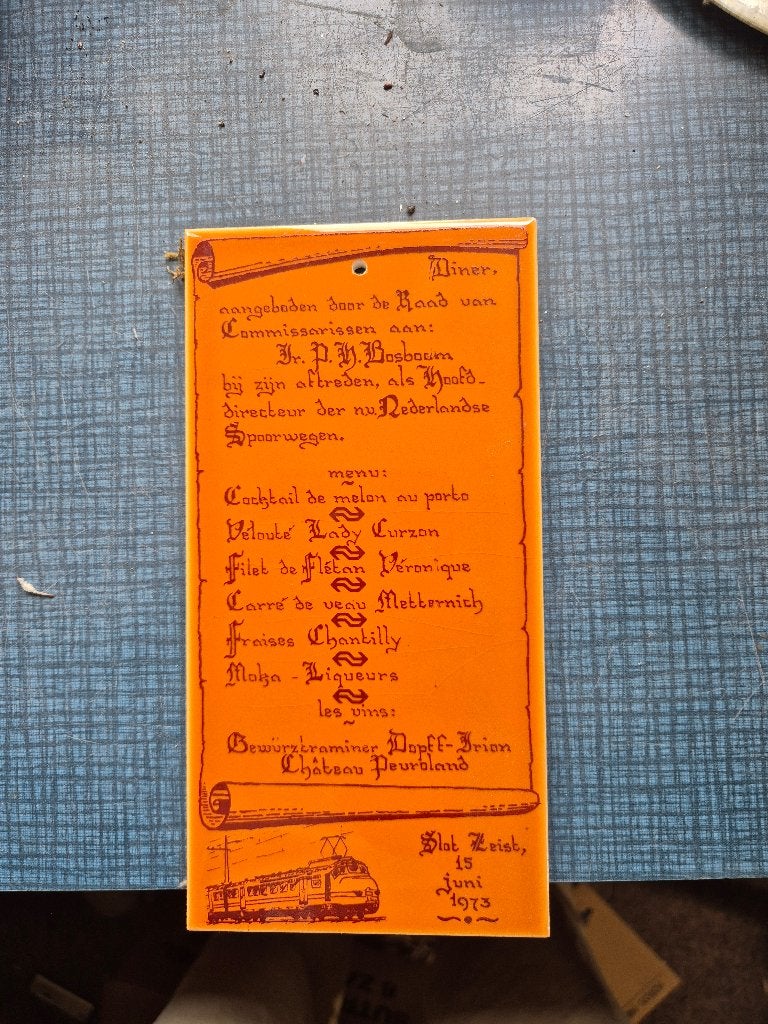 Diner,
aangeboden door de Raad van
Commissarissen aan:
Ir. P. H. Bosboom
bij zijn aftreden, als Hoofd-
directeur der n.v. Nederlandse
Spoorwegen.
menu:
Cocktail de melon au porto
Velouté Lady Curzon
Filet de Flétan Véronique
Carré de veau Metternich
Fraises Chantilly
Moka - Liqueurs
les vins:
Gewürztraminer Dopff-Irion
Château Peurbland
Slot Zeist,
15
juni
1973